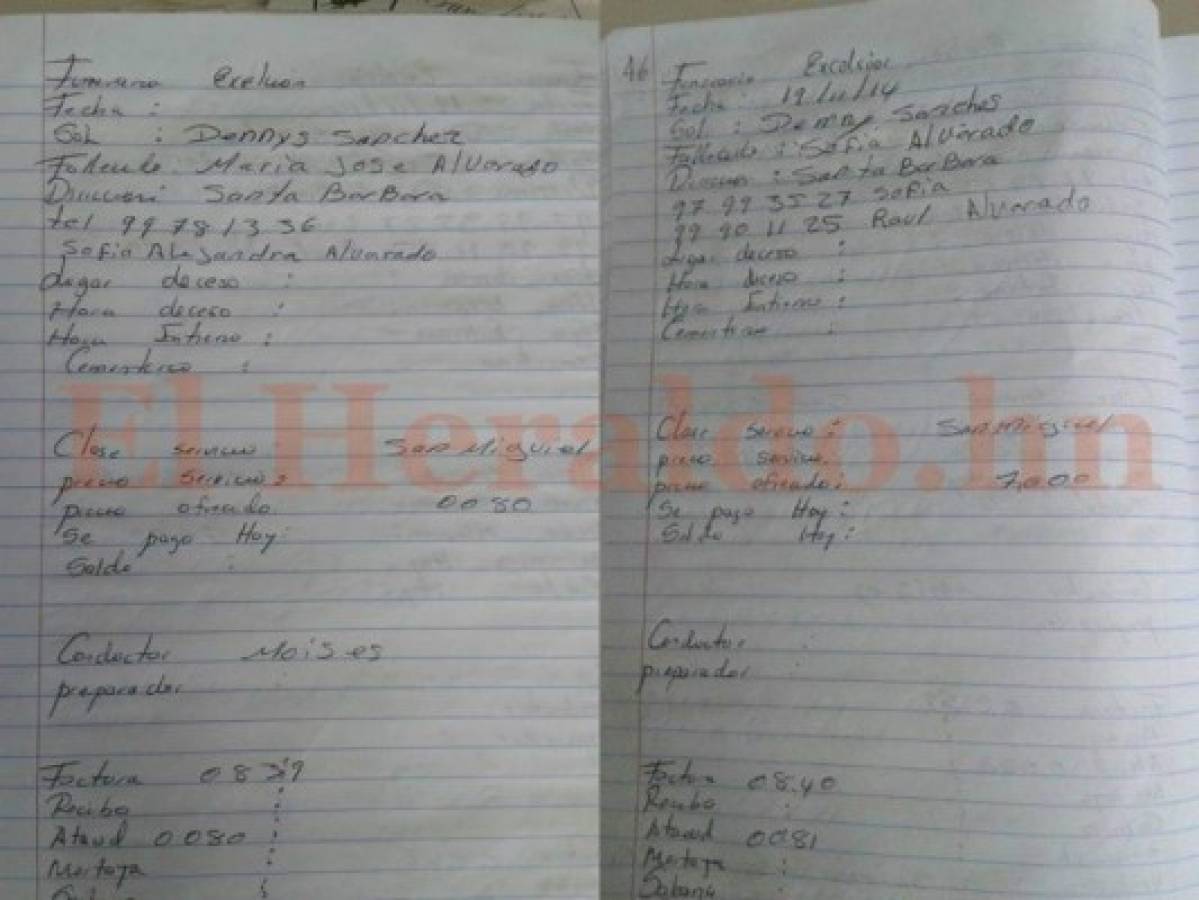 Funeraria Exelsior
Fecha :
Sol : Dennys Sanchez
Fallecido Maria Jose Alvarado
Direccion: Santa BarBara
tel 99 78 13 36
Sofia Alejandra Alvarado
Lugar deceso :
Hora deceso :
Hora Entierro :
Cementerio :
Clase servicio San Miguel
precio servicio :
precio ofrecido 0080
Se pago Hoy :
Saldo :
Conductor Moises
preparador
Factura
Recibo :
Ataud 0080 :
Mortaja :
46 Funeraria
Fecha : 19/11/14
Sol : Sanches
Fallecido : Sofia Alvarado
Direccion : Santa BarBara
97 99 35 27 Sofia
99 90 11 25 Raul Alvarado
Lugar deceso :
Hora deceso :
Hora Entierro :
Cementerio :
Clase servicio : San Miguel
precio servicio.
precio ofrecido : 7,000
Se pago Hoy :
Saldo Hoy :
Conductor :
preparador :
Factura 08.40
Recibo :
Ataud 0081
Mortaja :
Sabana :
El Heraldo.hn